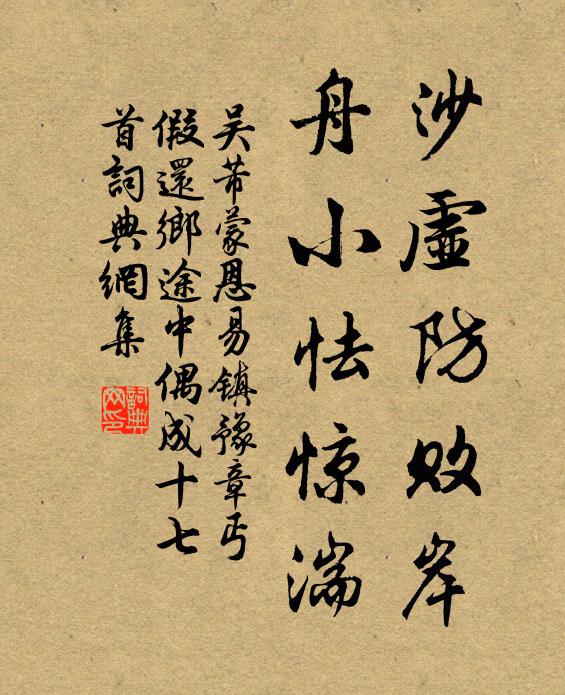 沙虚防败岸
舟小怯惊湍
吴芾蒙恩易镇豫章丐
假還鄉途中偶成十七
首詞典網集
詞典
网印